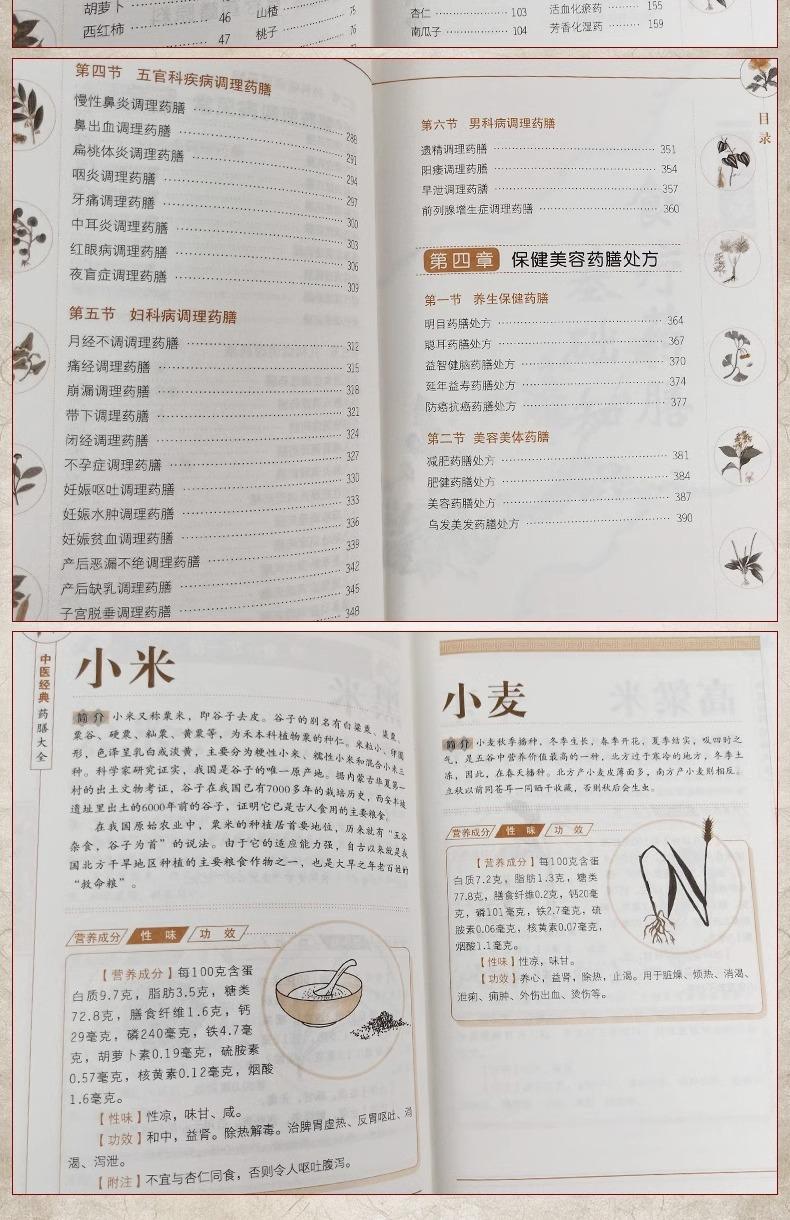 胡萝卜
西红柿
46
47
山楂
桃子
75
76
杏仁 103
南瓜子 104
活血化瘀药 155
芳香化湿药 159
第四节 五官科疾病调理药膳
慢性鼻炎调理药膳 288
鼻出血调理药膳 291
扁桃体炎调理药膳 294
咽炎调理药膳 297
牙痛调理药膳 300
中耳炎调理药膳 303
红眼病调理药膳 306
夜盲症调理药膳 309
第五节 妇科病调理药膳
月经不调调理药膳 312
痛经调理药膳 315
崩漏调理药膳 318
带下调理药膳 321
闭经调理药膳 324
不孕症调理药膳 327
妊娠呕吐调理药膳 330
妊娠水肿调理药膳 333
妊娠贫血调理药膳 336
产后恶漏不绝调理药膳 339
产后缺乳调理药膳 342
子宫脱垂调理药膳 345
348
目录
第六节 男科病调理药膳
遗精调理药膳 351
阳痿调理药膳 354
早泄调理药膳 357
前列腺增生症调理药膳 360
第四章 保健美容药膳处方
第一节 养生保健药膳
明目药膳处方 364
聪耳药膳处方 367
益智健脑药膳处方 370
延年益寿药膳处方 374
防癌抗癌药膳处方 377
第二节 美容美体药膳
减肥药膳处方 381
肥健药膳处方 384
美容药膳处方 387
乌发美发药膳处方 390
中医经典药膳大全
小米
简介 小米又称粟米，即谷子去皮。谷子的别名有白粱粟、粢粟、
粟谷、硬粟、籼粟、黄粟等，为禾本科植物粟的种仁。米粒小，卵圆
形，色泽呈乳白或淡黄，主要分为粳性小米、糯性小米和混合小米三
种。科学家研究证实，我国是谷子的唯一原产地。据内蒙古华夏第一
村的出土文物考证，谷子在我国已有7000多年的栽培历史，西安半坡
遗址里出土的6000年前的谷子，证明它已是古人食用的主要粮食。
在我国原始农业中，粟米的种植居首要地位，历来就有“五谷
杂食，谷子为首”的说法。由于它的适应能力强，自古以来就是我
国北方干旱地区种植的主要粮食作物之一，也是大旱之年老百姓的
“救命粮”。
营养成分 性味 功效
【营养成分】每100克含蛋
白质9.7克，脂肪3.5克，糖类
72.8克，膳食纤维1.6克，钙
29毫克，磷240毫克，铁4.7毫
克，胡萝卜素0.19毫克，硫胺素
0.57毫克，核黄素0.12毫克，烟酸
1.6毫克。
【性味】性凉，味甘、咸。
【功效】和中，益肾。除热解毒。治脾胃虚热、反胃呕吐、消
渴、泻泄。
【附注】不宜与杏仁同食，否则令人呕吐腹泻。
小麦
简介 小麦秋季播种，冬季生长，春季开花，夏季结实，吸四时之
气，是五谷中营养价值最高的一种，北方过于寒冷的地方，冬季土
冻，因此，在春天播种。北方产小麦皮薄面多，南方产小麦则相反。
立秋以前同苍耳一同晒干收藏，否则秋后会生虫。
营养成分 性味 功效
【营养成分】每100克含蛋
白质7.2克，脂肪1.3克，糖类
77.8克，膳食纤维0.2克，钙20毫
克，磷101毫克，铁2.7毫克，硫
胺素0.06毫克，核黄素0.07毫克，
烟酸1.1毫克。
【性味】性凉，味甘。
【功效】养心，益肾，除热，止渴。用于脏燥、烦热、消渴、
泄痢、痈肿、外伤出血、烫伤等。